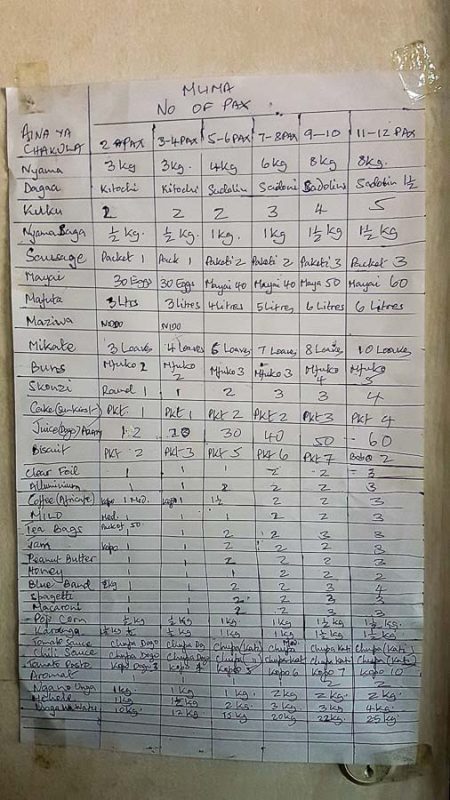 MUMA
NO OF PAX
AINA YA CHAKULA 2 PAX 3-4 PAX 5-6 PAX 7-8 PAX 9-10 11-12 PAX
Nyama 3 kg 3 kg. 4 kg 6 kg 8 kg 8 kg.
Dagaa Kitochi Kitochi Sadolin Sadolin Sadolin Sadolin 1½
Kuku 2 2 2 3 4 5
Nyama Baga ½ kg. ½ kg. 1 kg. 1 kg 1½ kg 1½ kg
Sausage Packet 1 Pack 1 Paketi 2 Paketi 2 Paketi 3 Packet 3
Mayai 30 Eggs 30 Eggs Mayai 40 Mayai 40 Maya 50 Mayai 60
Mafuta 3 Ltrs 3 litres 4 litres 5 litres 6 litres 6 litres
Maziwa N100 N100
Mikate 3 Loaves 4 loaves 6 loaves 7 Loaves 8 Loaves 10 Loaves
Buns Mfuko 2 Mfuko 2 Mfuko 3 Mfuko 3 Mfuko 4 Mfuko 5
Skonzi Round 1 1 2 3 3 4
Cake Pkt 1 Pkt 1 Pkt 2 Pkt 2 Pkt 3 Pkt 4
Juice 12 30 40 50 60
Biscuit Pkt 2 Pkt 3 Pkt 5 Pkt 6 Pkt 7 2
Clear Foil 1 1 1 2 2 3
Alluminium 1 1 2 2 2 3
Coffee (Africafe) 1 Med. 1 1½ 2 2 3
MILO Med. 1 1 1 2 2 3
Tea Bags Packet 50 1 2 2 3 3
Jam Kopo 1 1 2 2 2 3
Peanut Butter 1 1 2 2 2 3
Honey 1 1 1 2 2 2
Blue Band 2kg 1 2 2 3 4
Spagetti 1 1 2 2 3 3
Macaroni 1 1 2 2 3 3
Pop Corn ½ kg ½ kg 1 kg 1 kg 1½ kg 1½ kg
Karanga ½ kg 1 kg 1 kg 1½ kg 1½ kg
Tomato Sauce Chupa Dogo Chupa Dg Chupa (Kati) Chupa Chupa Kati Chupa (Kati)
Chilli Sauce Chupa Dogo Chupa Dogo Chupa Chupa Kati Chupa Kati Chupa (Kati)
Tomato Paste Kopo Dogo 3 Kopo Kopo 5 Kopo 6 Kopo 7 Kopo 10
Aromat 1 1 1 2 2
Ngano Unga 1 kg 1 kg 1 kg 2 kg 2 kg. 2 kg.
Mchele 1 kg 2 kg 3 kg 3 kg 4 kg.
10 kg 12 kg 15 kg 20 kg 22 kg 25 kg